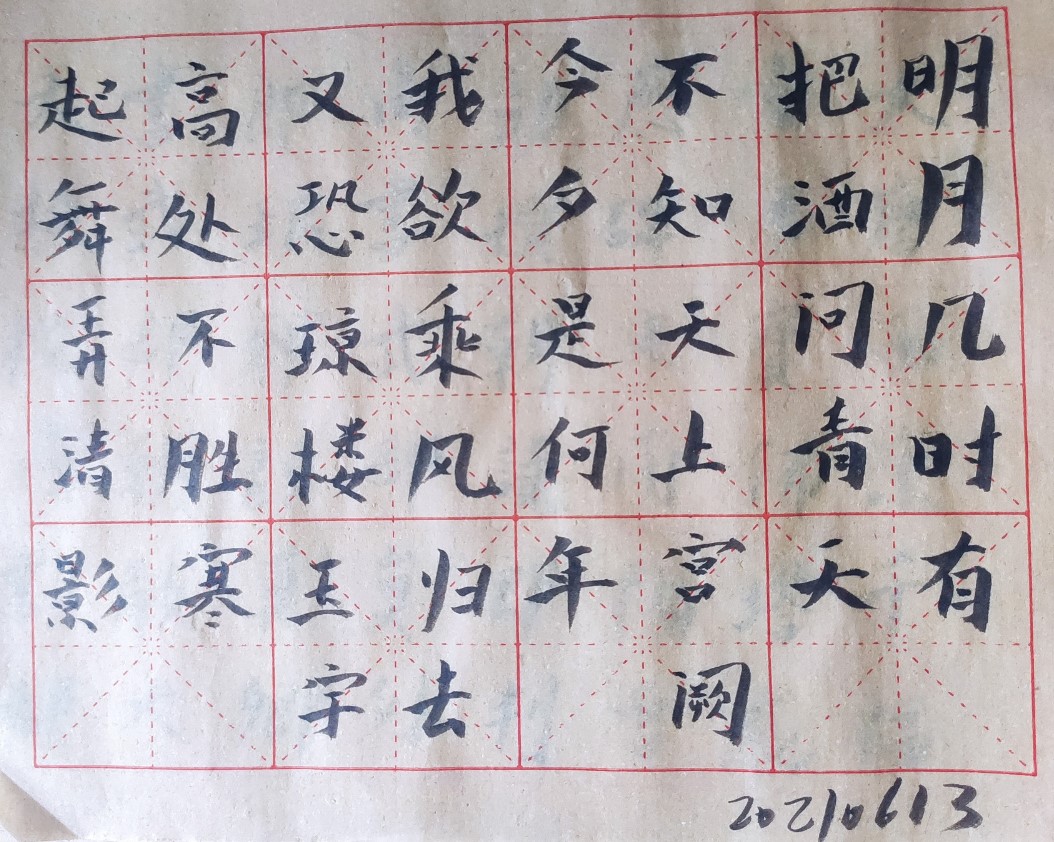 明月几时有
把酒问青天
不知天上宫阙
今夕是何年
我欲乘风归去
又恐琼楼玉宇
高处不胜寒
起舞弄清影
20210613